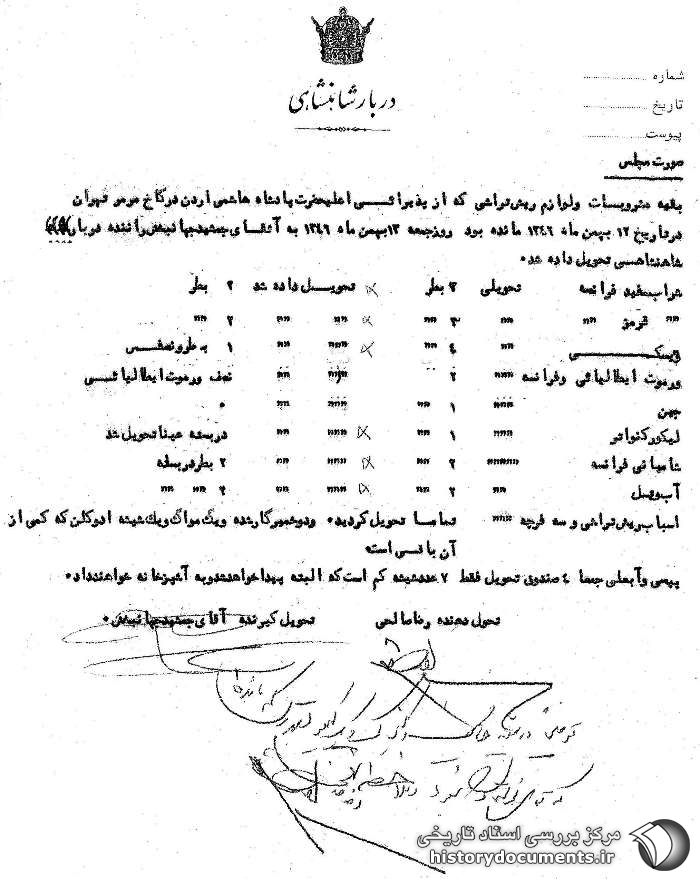 دربار شاهنشاهی
شماره
تاریخ
پیوست
صورت مجلس
بقیه مشروبات ولوازم ریش تراشی که از پذیرائی اعلیحضرت پادشاه هاشمی اردن در کاخ مرمر تهران
در تاریخ ۱۲ بهمن ماه ۱۳۴۶ مانده بود روز جمعه ۱۳ بهمن ماه ۱۳۴۶ به آقای جمشید جهانبخش راننده دربار
شاهنشاهی تحویل داده شد۰
شراب سفید فرانسه تحویلی ۳ بطر تحویل داده شد ۲ بطر
"" قرمز "" "" ۳ "" "" "" ۲ ""
ویسکی "" ٤ "" """ "" ۱ بطر ونصفی
ورموت ایطالیائی وفرانسه """ ۲ """ "" نصف ورموت ایطالیائی
جین """ ۱ "" """ "" ۰
لیکور کنواترو """ ۱ "" """ "" دربسته عینا تحویل شد
شامپانی فرانسه """"" ۲ "" """ "" ۲ بطر دربسته
آب ویسل "" ۲ "" """ "" ۲ "" ""
اسباب ریش تراشی و سه فرچه """ تماما تحویل گردید۰ ودو خمیر گارنده ویک مواک ویک شیشه ادوکلن که کمی از
آن باقسی است۰
پپسی وآبعلی جمعا ٤ صندوق تحویل فقط ۷ عدد شیشه کم است که البته پیدا خواهد شد وبه آشپزخانه خواهند داد۰
تحول دهنده رضا صالحی تحویل گیرنده آقای جمشید جهانبخش۰
مرکز بررسی اسناد تاریخی
historydocuments.ir